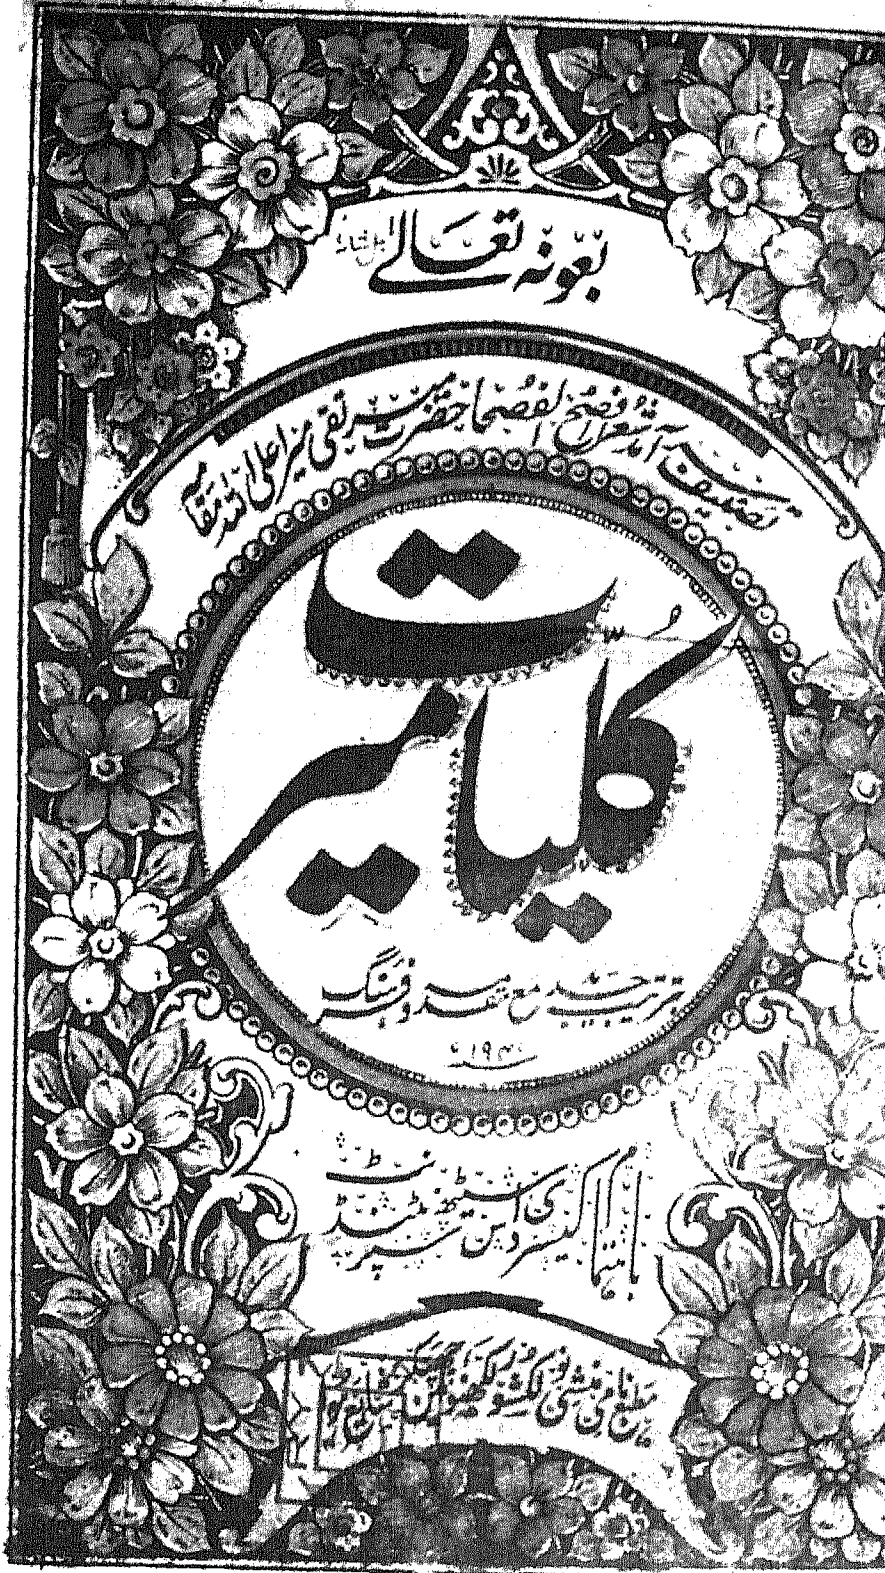 بعونہ تعالےٰ
تصنیف سرآمد شعرا افصح الفصحا حضرت میر تقی میر اعلی اللہ مقامہ
کلیات میر
بترتیب جدید مع مقدمہ و فرہنگ
سنہ ۱۹۴۰ء
باہتمام کیسری داس سیٹھ سپرنٹنڈنٹ
مطبع نامی منشی نولکشور لکھنؤ میں طبع ہوئی